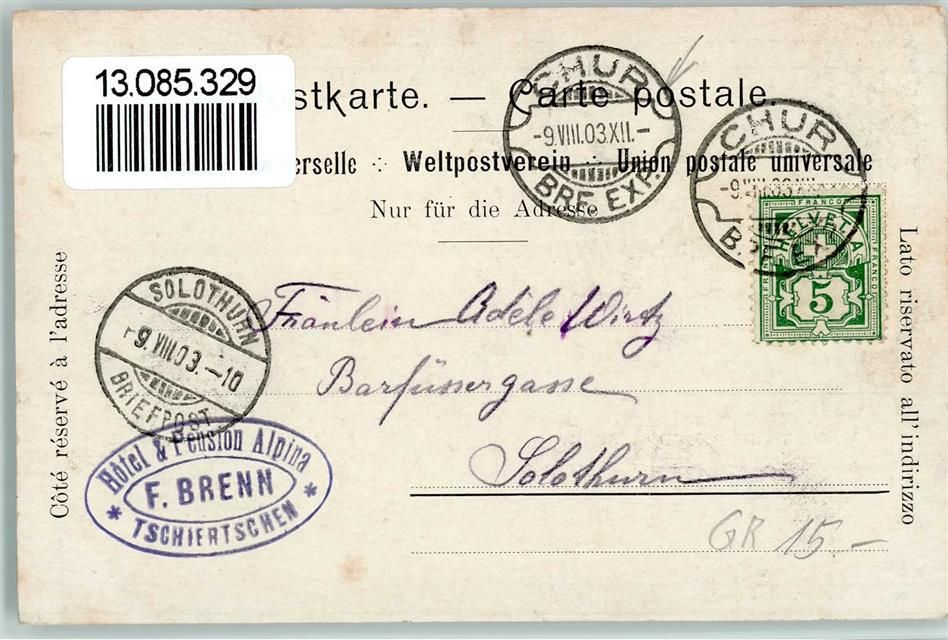 13.085.329
stkarte. — Carte postale.
erselle ∴ Weltpostverein ∴ Union postale universale
Nur für die Adresse
CHUR
-9.VIII.03.XII.-
BRF. EXP.
CHUR
-9.VIII.03.XII.
HELVETIA
FRANCO
FRANCO
FRANCO
5
SOLOTHURN
9.VIII.03.-10
BRIEFPOST
Fräulein Adele Wirtz
Barfüssergasse
Solothurn
Hôtel & Pension Alpina
F. BRENN
* TSCHIERTSCHEN *
GR 15.-
Côté réservé à l'adresse
Lato riservato all' indirizzo